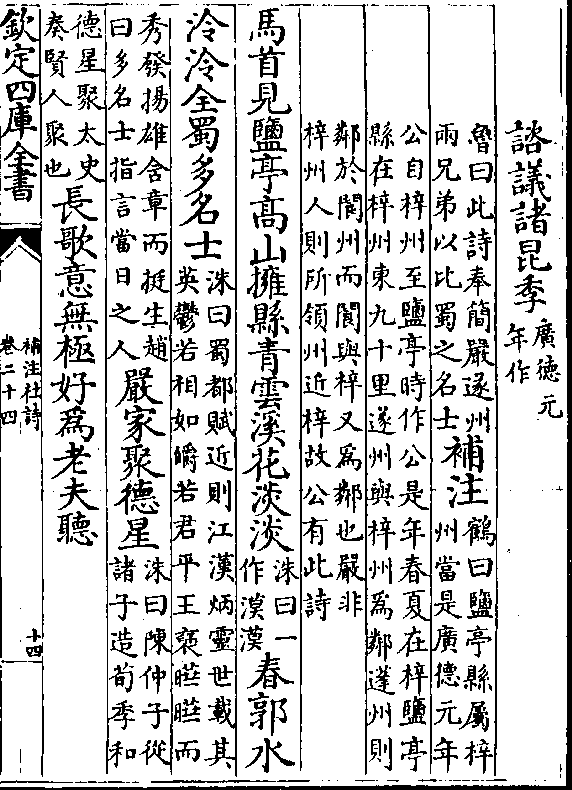 諮議諸昆季廣德元
年作
魯曰此詩奉簡嚴遂州
兩兄弟以比蜀之名士補注鶴曰鹽亭縣屬梓
州當是廣德元年
公自梓州至鹽亭時作公是年春夏在梓鹽亭
縣在梓州東九十里遂州與梓州為鄰蓬州則
鄰於閬州而閬與梓又為鄰也嚴非
梓州人則所領州近梓故公有此詩
馬首見鹽亭高山擁縣青雲溪花淡淡洙曰一
作漠漠春郭水
泠泠全蜀多名士洙曰蜀都賦近則江漢炳靈世載其
英鬱若相如皭若君平王襃暐曄而
秀發揚雄含章而挺生趙
曰多名士指言當日之人嚴家聚德星洙曰陳仲子從
諸子造荀季和
德星聚太史
奏賢人聚也長歌意無極好為老夫聽
欽定四庫全書
補注杜詩
卷二十四
十四